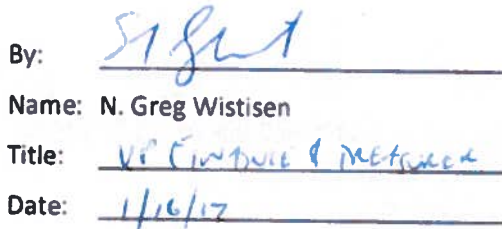 By:
Name: N. Greg Wistisen
Title: VP Finance & Treasurer
Date: 1/16/17